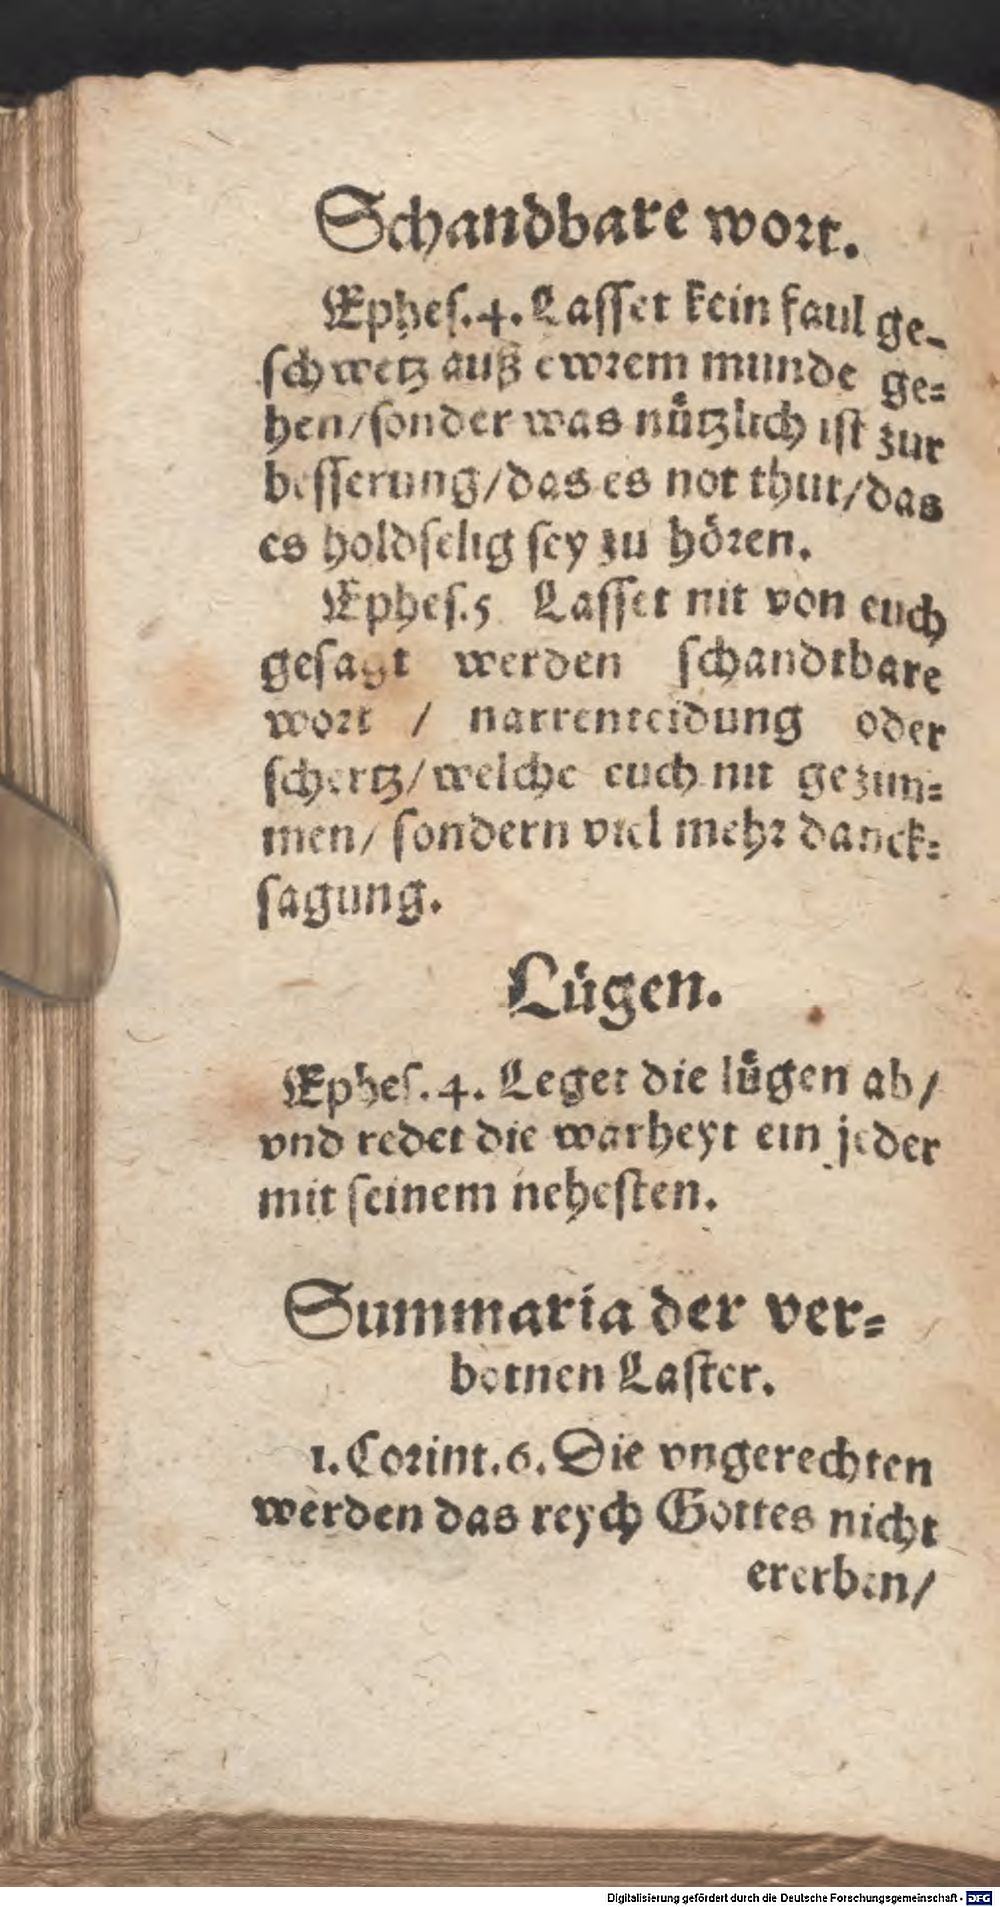 Schandbare wort.
Ephes.4. Lasset kein faul ge-
schwetz auß ewrem munde ge-
hen/sonder was nützlich ist zur
besserung/das es not thut/das
es holdselig sey zu hören.
Ephes.5 Lasset nit von euch
gesagt werden schandtbare
wort / narrenteidung oder
schertz/welche euch nit gezim-
men/ sondern viel mehr danck-
sagung.
Lügen.
Ephes.4. Leget die lügen ab/
vnd redet die warheyt ein jeder
mit seinem nehesten.
Summaria der ver-
botnen Laster.
1.Corint.6. Die vngerechten
werden das reych Gottes nicht
ererben/
Digitalisierung gefördert durch die Deutsche Forschungsgemeinschaft - DFG